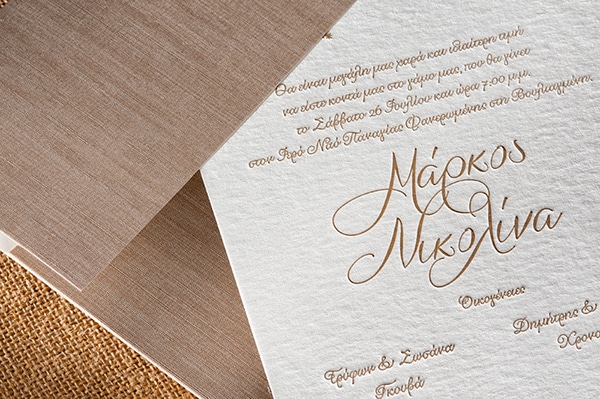 Θα είναι μεγάλη μας χαρά και ιδιαίτερη τιμή
να είστε κοντά μας στο γάμο μας, που θα γίνει
το Σάββατο 26 Ιουλίου και ώρα 7:00 μ.μ.
στον Ιερό Ναό Παναγίας Φανερωμένης στη Βουλιαγμένη.
Μάρκος
Νικολίνα
Οικογένειες
Τρύφων & Σωσάνα
Γκουβά
Δημήτρης &
Χρονο